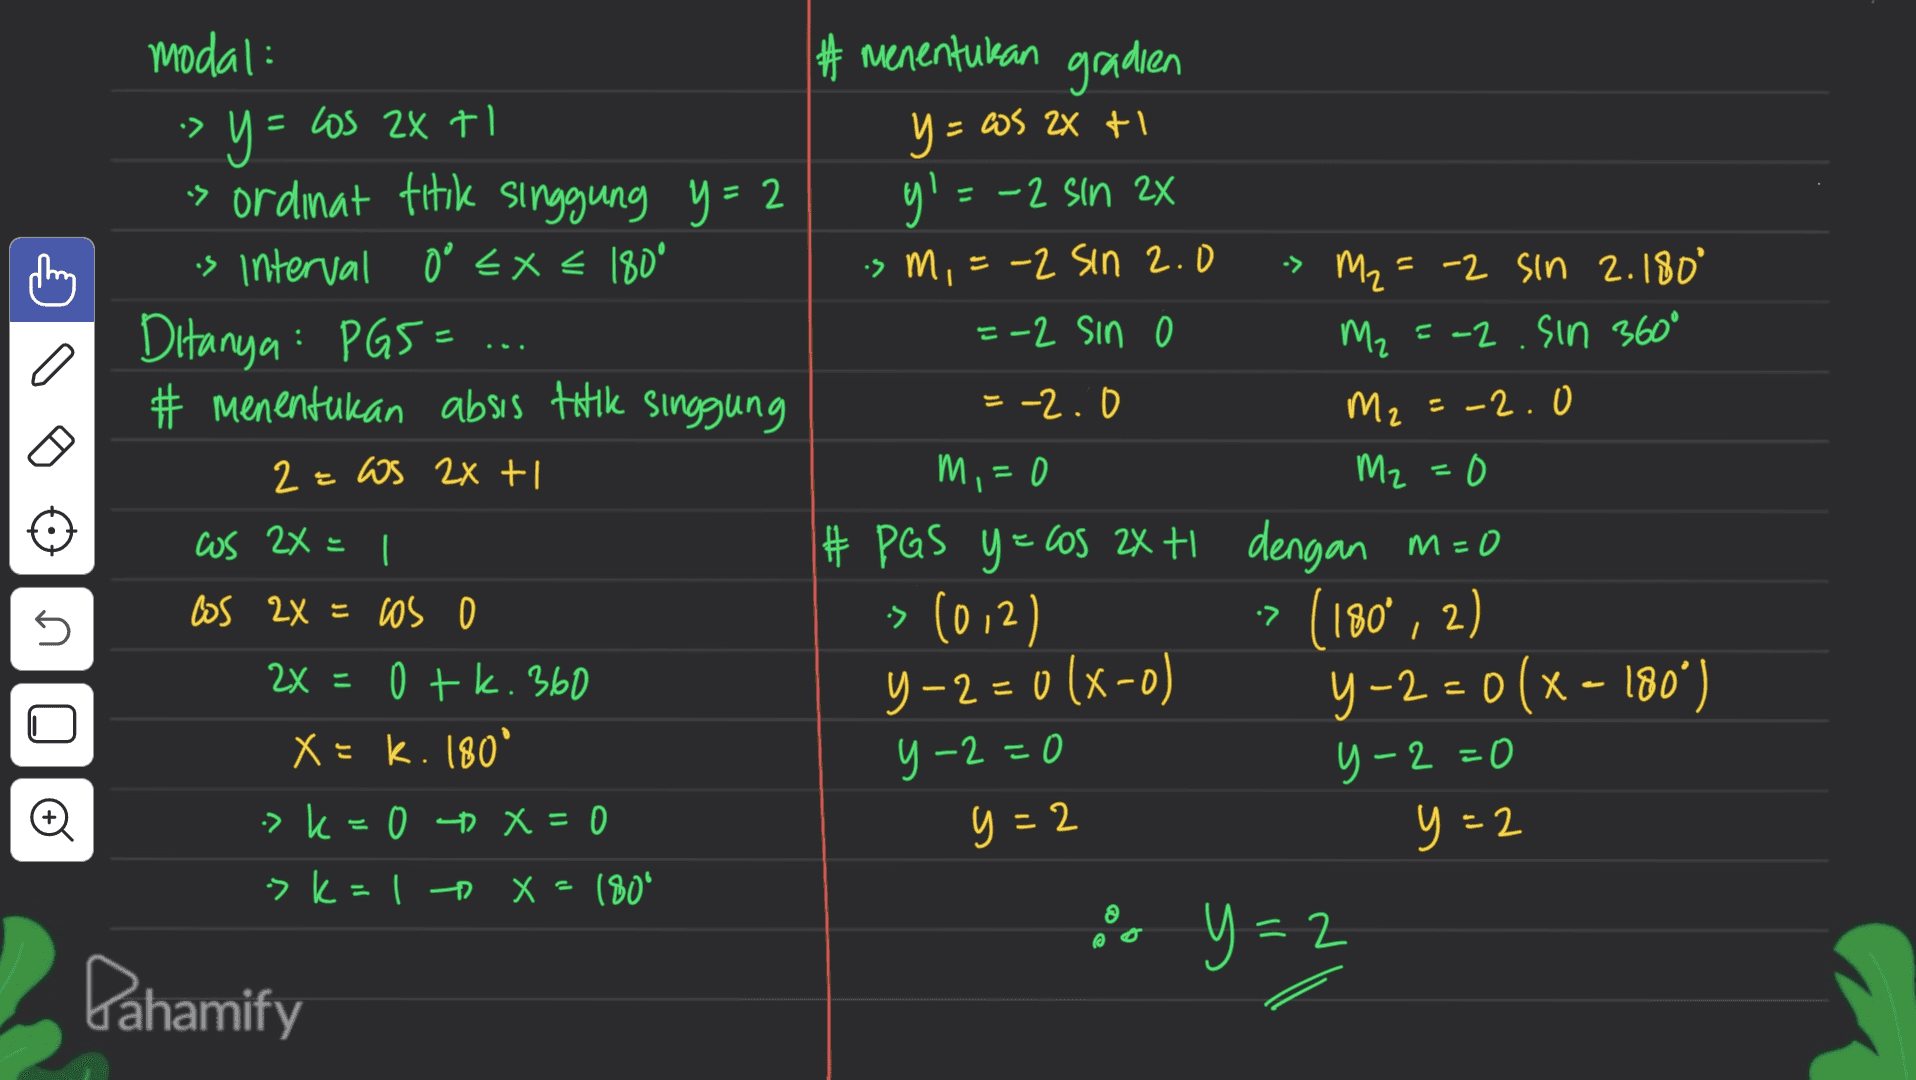 modal:
·> y = cos 2x +1
·> ordinat titik singgung y = 2
·> Interval 0° ≤ x ≤ 180°
Ditanya: PGS = ...
# menentukan absis titik singgung
2 = cos 2x +1
cos 2x = 1
cos 2x = cos 0
2x = 0 + k. 360
x = k. 180°
·> k = 0 → x = 0
·> k = 1 → x = 180°
# menentukan gradien
y = cos 2x +1
y' = -2 sin 2x
·> m₁ = -2 sin 2.0
= -2 sin 0
= -2.0
m₁ = 0
·> m₂ = -2 sin 2.180°
m₂ = -2 . sin 360°
m₂ = -2.0
m₂ = 0
# PGS y = cos 2x +1 dengan m = 0
·> (0,2)
y - 2 = 0 (x-0)
y - 2 = 0
y = 2
·> (180°, 2)
y - 2 = 0 (x - 180°)
y - 2 = 0
y = 2
∴ y = 2
Pahamify